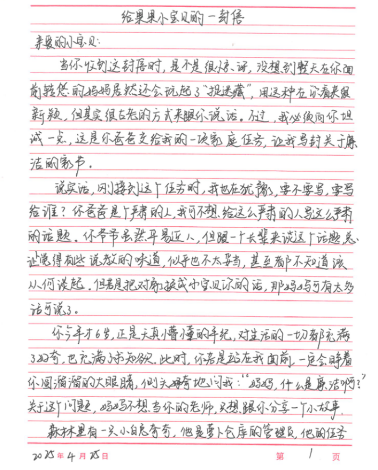 给果果小宝贝的一封信
亲爱的小宝贝:
当你收到这封信时,是不是很惊讶,没想到整天在你面
前转悠的妈妈居然还会玩起了“捉迷藏”,用这种在你看来很
新颖,但其实很古老的方式来跟你说话。不过,我必须向你坦
诚一点,这是你爸爸交给我的一项家庭任务,让我写封关于廉
洁的家书。
说实话,刚接到这个任务时,我也在犹豫,要不要写,要写
给谁?你爸爸是个严肃的人,我可不想给这么严肃的人写这么严肃
的话题。你爷爷虽然平易近人,但跟一个长辈来谈这个话题,总
让我觉得有些说教的味道,似乎也不太妥当,甚至都不知道该
从何谈起。但若是把对象换成小宝贝你的话,那妈妈可有太多
话可说了。
你今年才6岁,正是天真懵懂的年纪,对生活的一切都充满
了好奇,也充满了求知欲。此时,你若是站在我面前,一定会睁着
你圆溜溜的大眼睛,侧头好奇地问我:“妈妈,什么是廉洁啊?”
关于这个问题,妈妈不想当你的老师,只想跟你分享一个小故事。
森林里有一只小白兔奇奇,他是萝卜仓库的管理员,他的任务
2025年4月25日 第 1 页